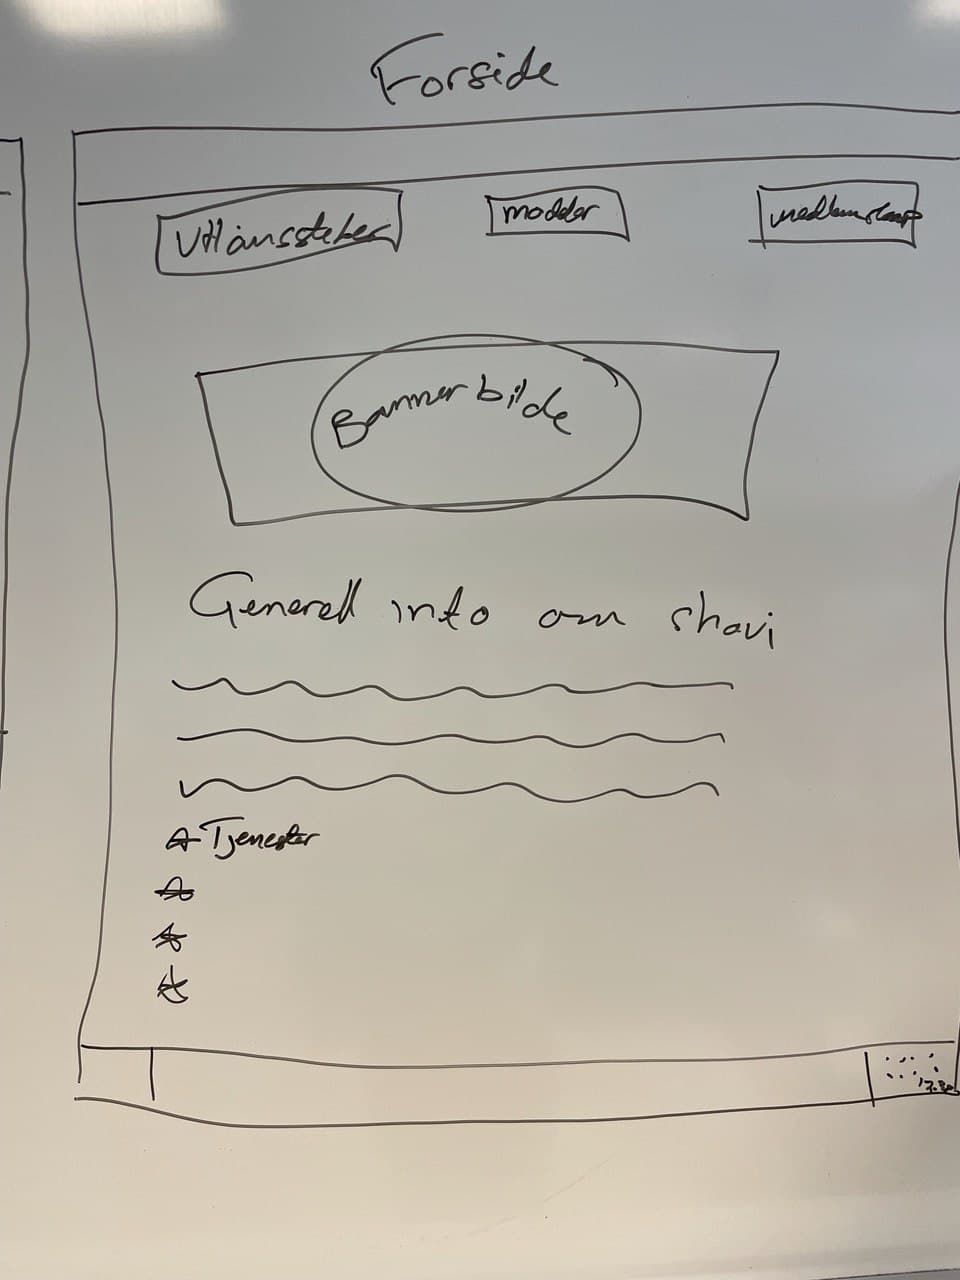 Forside
Utlånssteder
modeller
medlemskap
Banner bilde
Generell info om shavi
Tjenester
17.30